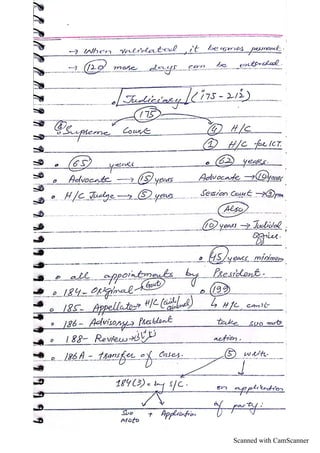 → When validated, it becomes permanent.
→ 120 more days can be extended
Judiciary (175-212)
175
Supreme Court
4 H/C
1 H/C for ICT.
65 years
62 years.
Advocate → 15 years
Advocate → 10 years
H/C Judge → 5 years
Session Court →
Also
10 years → Judicial Officer.
45 years minimum
all appointments by President.
184 - Original
199
185 - Appellate → H/C (civil/
↳ H/C can't
186 - Advisory → President
take suo moto
188 - Review →
action.
186A - transfer of Cases.
5 writs
184(3) → by S/C.
on application
Suo Moto + Application
of party.
Scanned with CamScanner